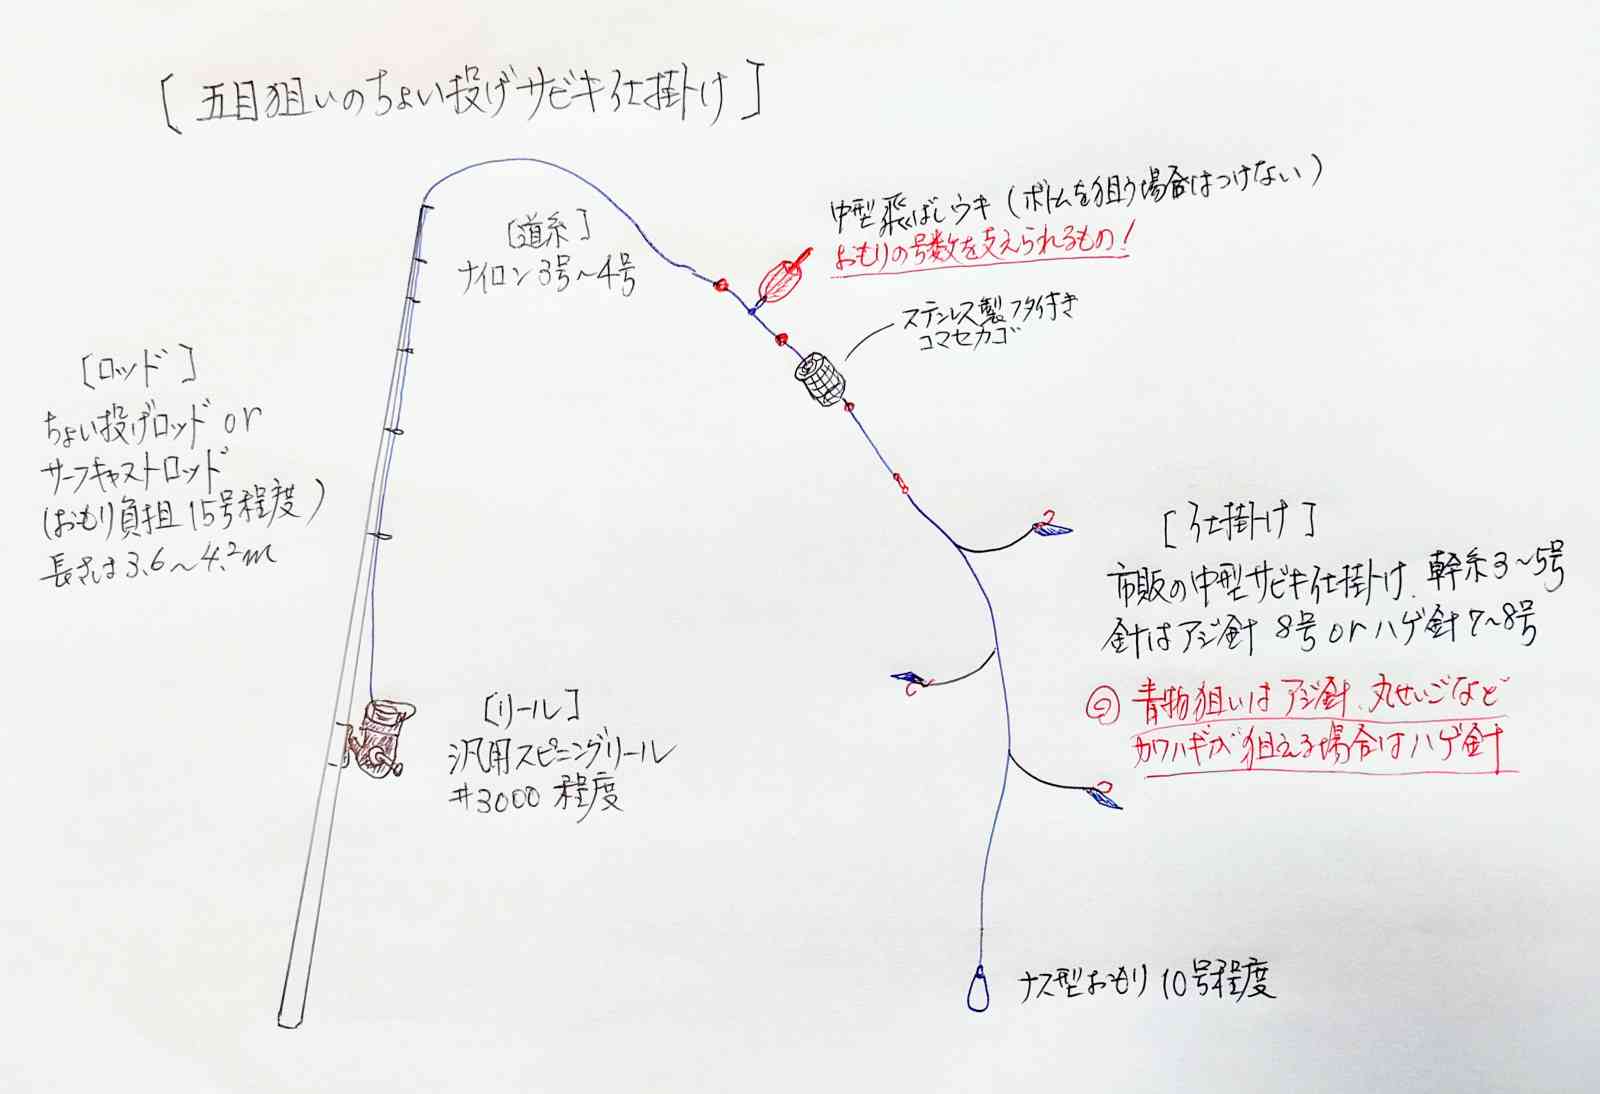 [五目狙いのちょい投げサビキ仕掛け]
中型飛ばしウキ(ボトムを狙う場合はつけない)
おもりの号数を支えられるもの!
[道糸]
ナイロン3号~4号
ステンレス製フタ付き
コマセカゴ
[ロッド]
ちょい投げロッド or
サーフキャストロッド
(おもり負担15号程度)
長さは3.6~4.2m
[仕掛け]
市販の中型サビキ仕掛け、幹糸3~5号
針はアジ針 8号 or ハゲ針7~8号
◎青物狙いはアジ針、丸せいごなど
カワハギが狙える場合はハゲ針
[リール]
汎用スピニングリール
#3000 程度
ナス型おもり 10号程度